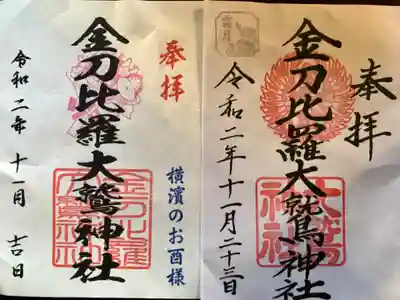 奉拝
金刀比羅大鷲神社
大鷲神社
令和二年十一月二十三日
奉拝
横濱のお酉様
金刀比羅大鷲神社
令和二年 十一月 吉日